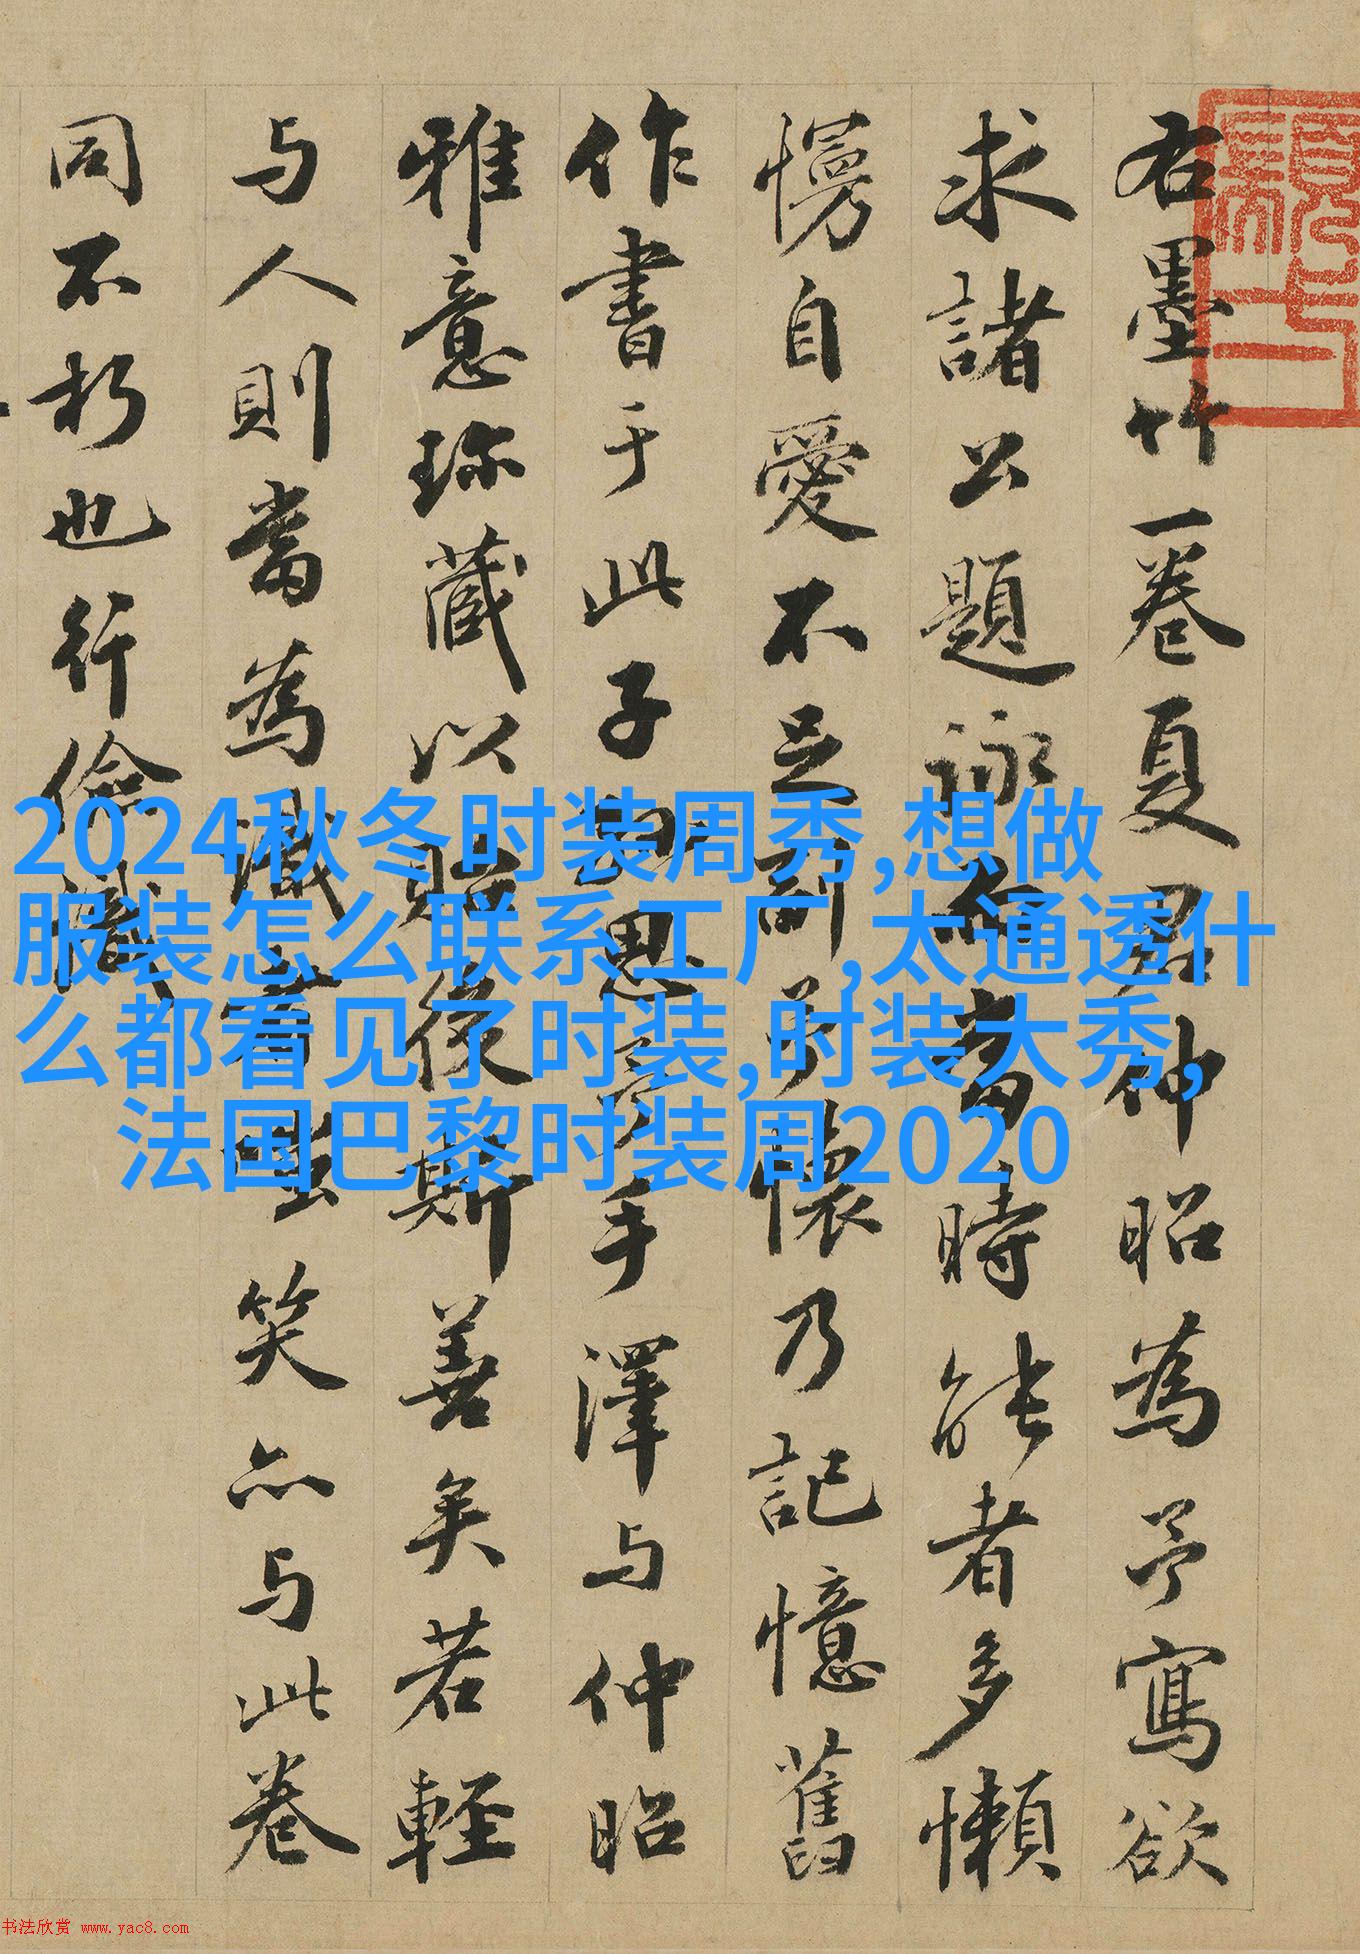 右墨竹一卷夏君仲昭為予寫欲
求諸公題詠而當時能者多懶
慢自愛不足副予懷乃記憶舊
作書于此子思予手澤与仲昭
雅意珍藏以貽後斯善矣若輕
与人則當為識者嗤笑亦与此卷
同不朽也行儉識
2024秋冬时装周秀,想做
服装怎么联系工厂,太通透什
么都看见了时装,时装大秀,
法国巴黎时装周2020
书法欣赏 www.yac8.com